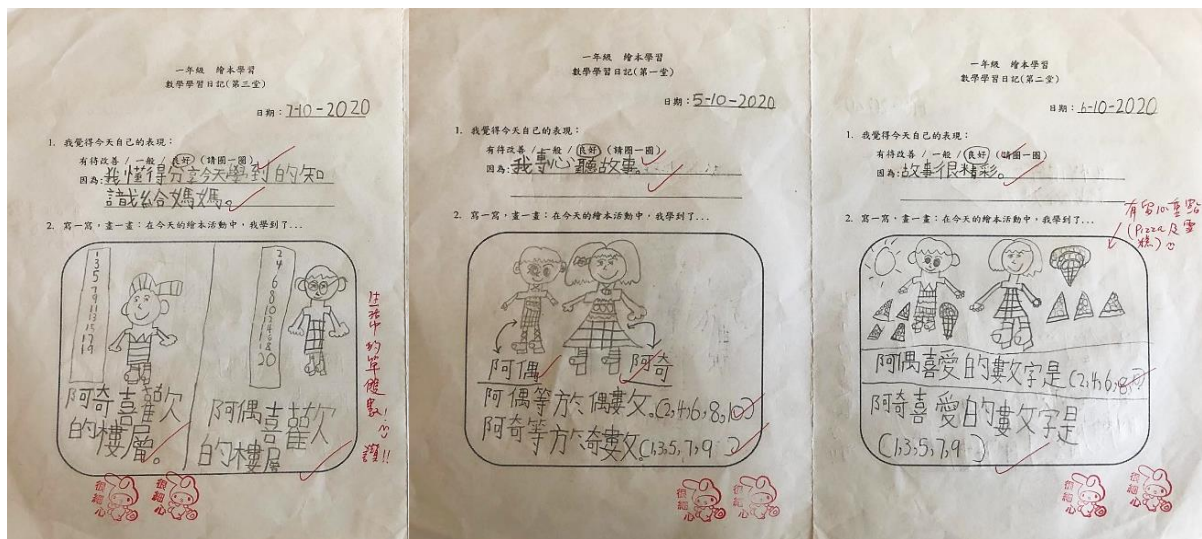 一年級 繪本學習
數學學習日記(第三堂)
日期：7-10-2020
1. 我覺得今天自己的表現：
有待改善 / 一般 / 良好 (請圈一圈)
因為：我懂得分享今天學到的知
識給媽媽。
2. 寫一寫，畫一畫：在今天的繪本活動中，我學到了...
1
3
5
7
9
11
13
15
17
19
2
4
6
8
10
12
14
16
18
20
阿奇喜歡
的樓層。
阿偶喜歡
的樓層
生活中的單雙數！
讚!!
很細心
很細心
一年級 繪本學習
數學學習日記(第一堂)
日期：5-10-2020
1. 我覺得今天自己的表現：
有待改善 / 一般 / 良好 (請圈一圈)
因為：我專心聽故事。
2. 寫一寫，畫一畫：在今天的繪本活動中，我學到了...
阿偶
阿奇
阿偶等於偶數。(2,4,6,8,10)
阿奇等於奇數(1,3,5,7,9)
很細心
很細心
一年級 繪本學習
數學學習日記(第二堂)
日期：6-10-2020
1. 我覺得今天自己的表現：
有待改善 / 一般 / 良好 (請圈一圈)
因為：故事很精彩。
2. 寫一寫，畫一畫：在今天的繪本活動中，我學到了...
有留心重點
(Pizza 及雪
糕)
阿偶喜愛的數字是(2,4,6,8,
阿奇喜愛的數字是
(1,3,5,7,9 )
很細心
很細心